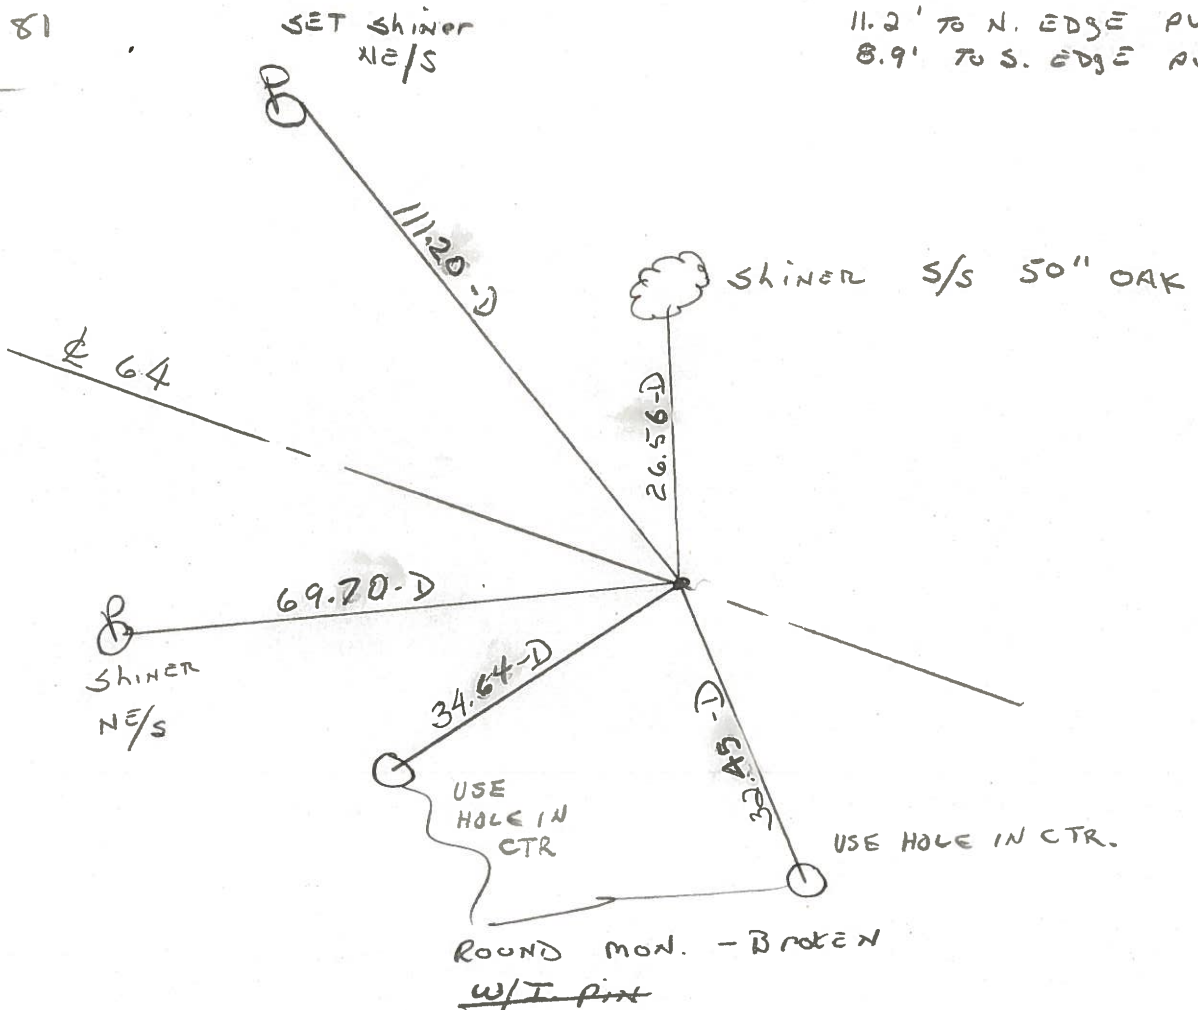 81
SET Shiner
NE/S
11.2' TO N. EDGE
8.9' TO S. EDGE
111.20-D
SHINER S/S 50" OAK
℄ 64
26.56-D
69.70-D
SHINER
NE/S
34.64-D
USE
HOLE IN
CTR
32.45-D
USE HOLE IN CTR.
ROUND MON. - BROKEN
W/I. PIN